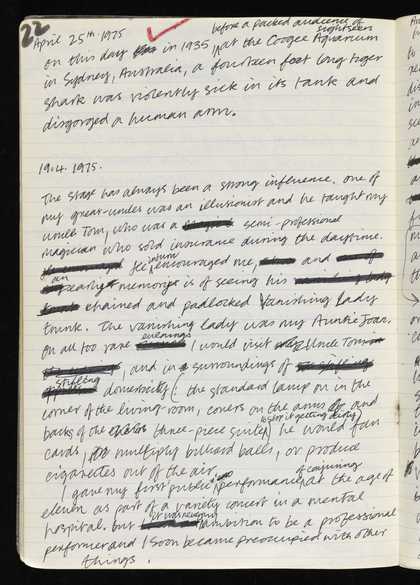 22
April 25th 1975
before a packed audience of
sightseers
on this day in 1935, at the Coogee Aquarium
in Sydney, Australia, a fourteen foot long tiger
shark was violently sick in its tank and
disgorged a human arm.
19.4.1975.
The stage has always been a strong influence. One of
my great-uncles was an illusionist and he taught my
uncle Tom, who was a semi-professional
magician who sold insurance during the daytime.
He in turn encouraged me, and
an early memory is of seeing his
chained and padlocked Vanishing Lady
trunk. The vanishing lady was my Auntie Joan.
On all too rare evenings I would visit Uncle Tom
, and in surroundings of
stifling domesticity (the standard lamp on in the
corner of the living-room, covers on the arms and
backs of the three-piece suite to stop it getting dirty) he would fan
cards, multiply billiard balls, or produce
cigarettes out of the air.
I gave my first public performance of conjuring at the age of
eleven as part of a variety concert in a mental
hospital. but it was never my ambition to be a professional
performer and I soon became preoccupied with other
things.